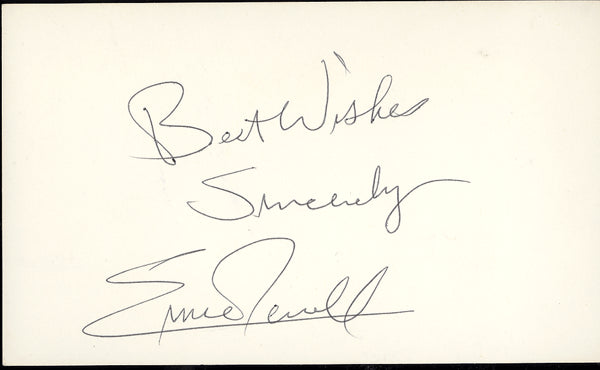 Best Wishes
Sincerely
Ernie Terrell